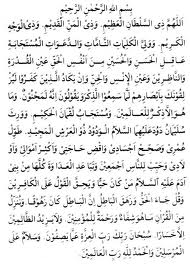 بِسْمِ اللهِ الرَّحْمٰنِ الرَّحِيْمِ
اَللّٰهُمَّ ذِى السُّلْطَانِ الْعَظِيْمِ وَذِى الْمَنِّ الْقَدِيْمِ وَذِى الْوَجْهِ
الْكَرِيْمِ وَوَلِيِّ الْكَلِمَاتِ التَّامَّاتِ وَالدَّعَوَاتِ الْمُسْتَجَابَةِ
عَاقِلِ الْحَسَنِ وَالْحُسَيْنِ مِنْ اَنْفُسِ الْحَقِّ عَيْنِ الْقُدْرَةِ
وَالنَّاظِرِيْنَ وَعَيْنِ الْاِنْسِ وَالْجِنِّ وَاِنْ يَكَادُ الَّذِيْنَ كَفَرُوْا لَيُزْ
لِقُوْنَكَ بِاَبْصَارِهِمْ لَمَّا سَمِعُوا الذِّكْرَ وَيَقُوْلُوْنَ اِنَّهُ لَمَجْنُوْنٌ وَمَا
هُوَ اِلَّا ذِكْرٌ لِلْعَالَمِيْنَ وَمُسْتَجَابُ لُقْمَانِ الْحَكِيْمِ وَوَرِثَ
سُلَيْمَانُ دَاوُدَ عَلَيْهِمَا السَّلَامُ الْوَدُوْدُ ذُو الْعَرْشِ الْمَجِيْدِ طَوِّلْ
عُمْرِيْ وَصَحِّحْ اَجْسَادِيْ وَاقْضِ حَاجَتِيْ وَاَكْثِرْ اَمْوَالِيْ وَاَوْلَادِيْ
وَحَبِّبْ لِلنَّاسِ اَجْمَعِيْنَ وَتَبَاعَدِ الْعَدَاوَةَ كُلَّهَا مِنْ بَنِيْ
اٰدَمَ عَلَيْهِ السَّلَامُ مَنْ كَانَ حَيًّا وَيَحِقَّ الْقَوْلُ عَلَى الْكَافِرِيْنَ
وَقُلْ جَاءَ الْحَقُّ وَزَهَقَ الْبَاطِلُ اِنَّ الْبَاطِلَ كَانَ زَهُوْقًا وَنُنَزِّلُ
مِنَ الْقُرْاٰنِ مَاهُوَ شِفَاءٌ وَرَحْمَةٌ لِلْمُؤْمِنِيْنَ وَلَايَزِيْدُ الظَّالِمِيْنَ
اِلَّا خَسَارًا سُبْحَانَ رَبِّكَ رَبِّ الْعِزَّةِ عَمَّا يَصِفُوْنَ وَسَلَامٌ عَلَى
الْمُرْسَلِيْنَ وَالْحَمْدُ لِلهِ رَبِّ الْعَالَمِيْنَ